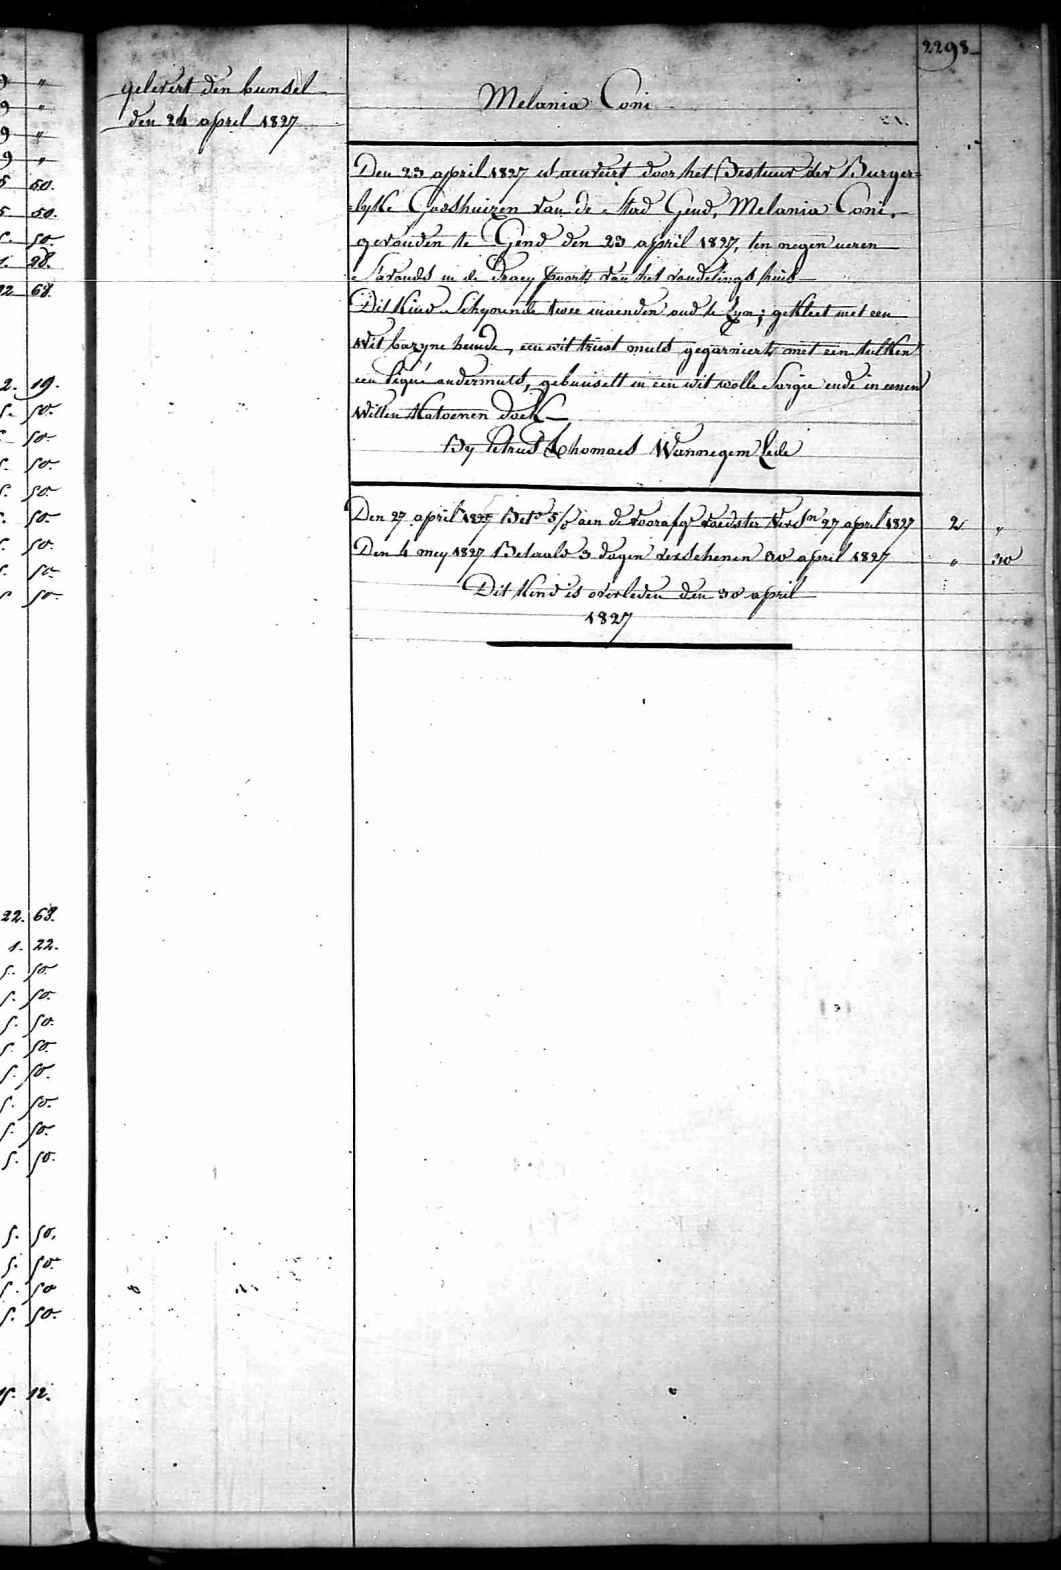 2298
gelevert den bunsel
den 24 april 1827
Melania Coni
Den 23 april 1827 is aenveert door het Bestuur der Burger=
=lyke Godshuizen van de Stad Gend, Melania Coni,
gevonden te Gend den 23 april 1827, ten negen ueren
S'avonds in de Draey poort van het vondelings huis
Dit kind Schynende twee maenden oud te Zyn; gekleet met een
wit bazyne hemde, een wit triest muts gegarniert met een tulken
een piqué ondermuts, gebunselt in een wit wolle Sargie ende in eenen
witten katoenen doek
By Petrus Thomaes Wannegem Lede
Den 27 april 1827 Bet. aen de voorafge voedster Vers 27 april 1827 2 "
Den 4 mey 1827 Betaald 3 dagen verschenen 30 april 1827 " 30
Dit Kind is overleden den 30 april
1827
9 "
9 "
9 "
9 "
5 50.
5 50.
5. 50.
1. 28.
22 68.
2. 19.
5. 50.
5 50.
5. 50.
5. 50.
5. 50.
5. 50.
5. 50.
5 50.
22. 68.
1. 22.
5. 50.
5. 50.
5. 50.
5. 50.
5. 50.
5. 50.
5. 50.
5. 50.
5. 50.
5. 50.
5. 50
5. 50.
15. 12.